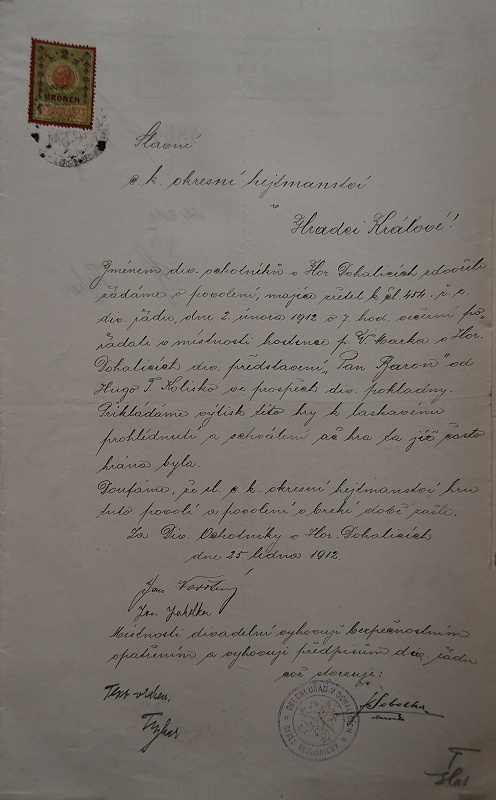 2
KRONEN
2
Slavné
c. k. okresní hejtmanství
v
Hradci Králové!
Jménem div. ochotníků v Hor. Dohalicích zdvořile
žádáme o povolení, majíce zřetel k čl. 454. ř. z.
div. řádu, dne 2. února 1912 o 7. hod. večerní po-
řádati v místnosti hostince p. V. Marka v Hor.
Dohalicích div. představení, "Pan Baron" od
Hugo T. Kolisko ve prospěch div. pokladny.
Přikládáme výtisk této hry k laskavému
prohlédnutí a schválení ač hra ta již často
hrána byla.
Doufáme, že sl. c. k. okresní hejtmanství hru
tuto povolí a povolení v brzké době zašle.
Za Div. Ochotníky v Hor. Dohalicích
dne 25 ledna 1912.
Jan
Jan
Místnosti divadelní vyhovují bezpečnostním
opatřením a vyhovují předpisům div. řádu
což stvrzuje:
Text vrácen.
OBECNÍ ÚŘAD V DOHALICÍCH
OKRES NECHANICKÝ
Sobotka